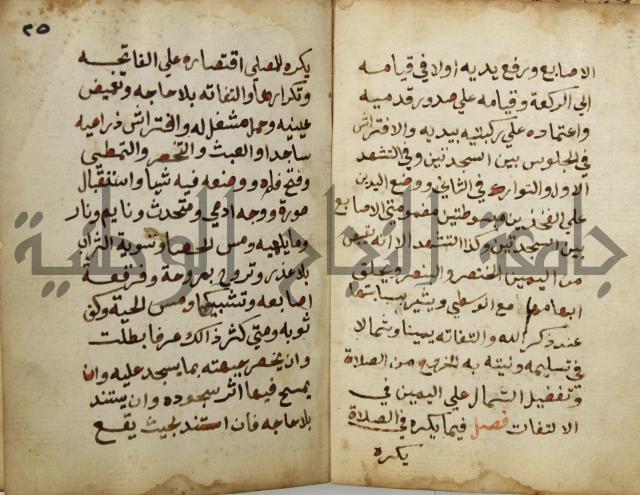 الاصابع ورفع يديه اولا في قيامه
الي الركعة وقيامه علي صدور قدميه
واعتماده علي ركبتيه بيديه والافتراش
في الجلوس بين السجدتين وفي التشهد
الاول والتورك في الثاني ووضع اليدين
علي الفخذين مبسوطتين مضمومتي الاصابع
بين السجدتين وكذا التشهد الا انه يقبض
من اليمين الخنصر والبنصر ويحلق
ابهامها مع الوسطي ويشير بسبابتها
عند ذكر الله والتفاته يمينا وشمالا
في تسليمه ونيته به الخروج من الصلاة
وتفضيل الشمال علي اليمين في
الالتفات فصل فيما يكره في الصلاة
يكره
٢٥
يكره للمصلي اقتصاره علي الفاتحه
وتكرارها والتفاته بلا حاجه وتغميض
عينيه وحمل مشغل له وافتراش ذراعيه
ساجدا والعبث والتخصر والتمطي
وفتح فمه ووضعه فيه شيا واستقبال
صورة ووجه ادمي ومتحدث ونايم ونار
وما يلهيه ومس الحصا وتسوية التراب
بلا عذر وتروح بمروحة وفرقعة
اصابعه وتشبيكها ومس لحيته وكف
ثوبه ومتي كثر ذالك عرفا بطلت
وان يخص جبهته بما يسجد عليه وان
يمسح فيها اثر سجوده وان يستند
بلا حاجه فان استند بحيث يقع
جامعة النجاح الوطنية